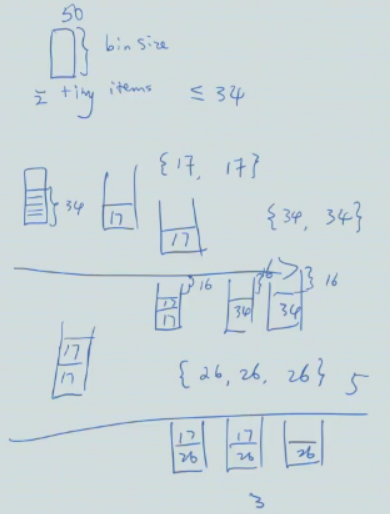 50
bin size
tiny items ≤ 34
34 17 {17, 17}
17 {34, 34}
17 17 16 34 16 34 16
17 17 {26, 26, 26} 5
17 26 17 26 26
3